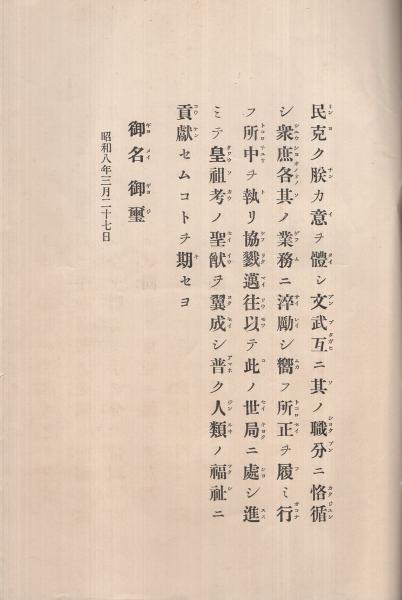 民克ク朕カ意ヲ體シ文武互ニ其ノ職分ニ恪循
シ衆庶各其ノ業務ニ淬勵シ嚮フ所正ヲ履ミ行
フ所中ヲ執リ協戮邁往以テ此ノ世局ニ處シ進
ミテ皇祖考ノ聖猷ヲ翼成シ普ク人類ノ福祉ニ
貢獻セムコトヲ期セヨ
御名御璽
昭和八年三月二十七日